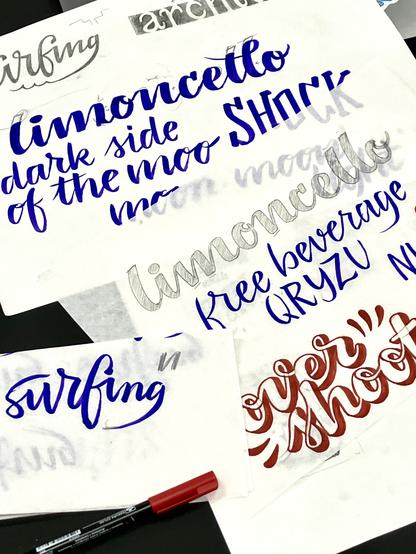 surfing
archit
limoncello
SHOCK
dark side
of the moo
mo
moon
limoncello
free beverage
QRYZU
N
surfing
n
over
shoot